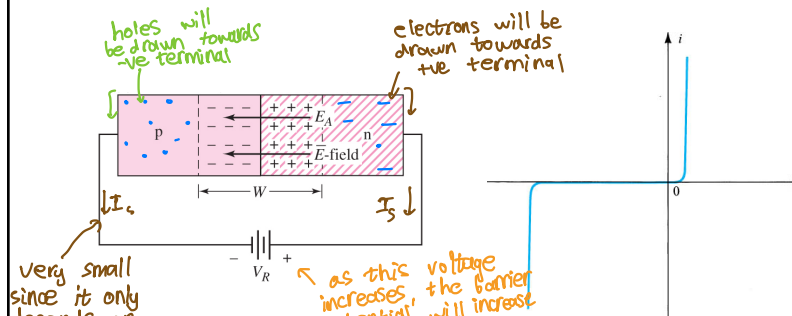 holes will
be drawn towards
-ve terminal
electrons will be
drawn towards
+ve terminal
p
n
E_A
E-field
W
I_s
I_s
- V_R +
very small
since it only
as this voltage
increases, the barrier
will increase
i
0